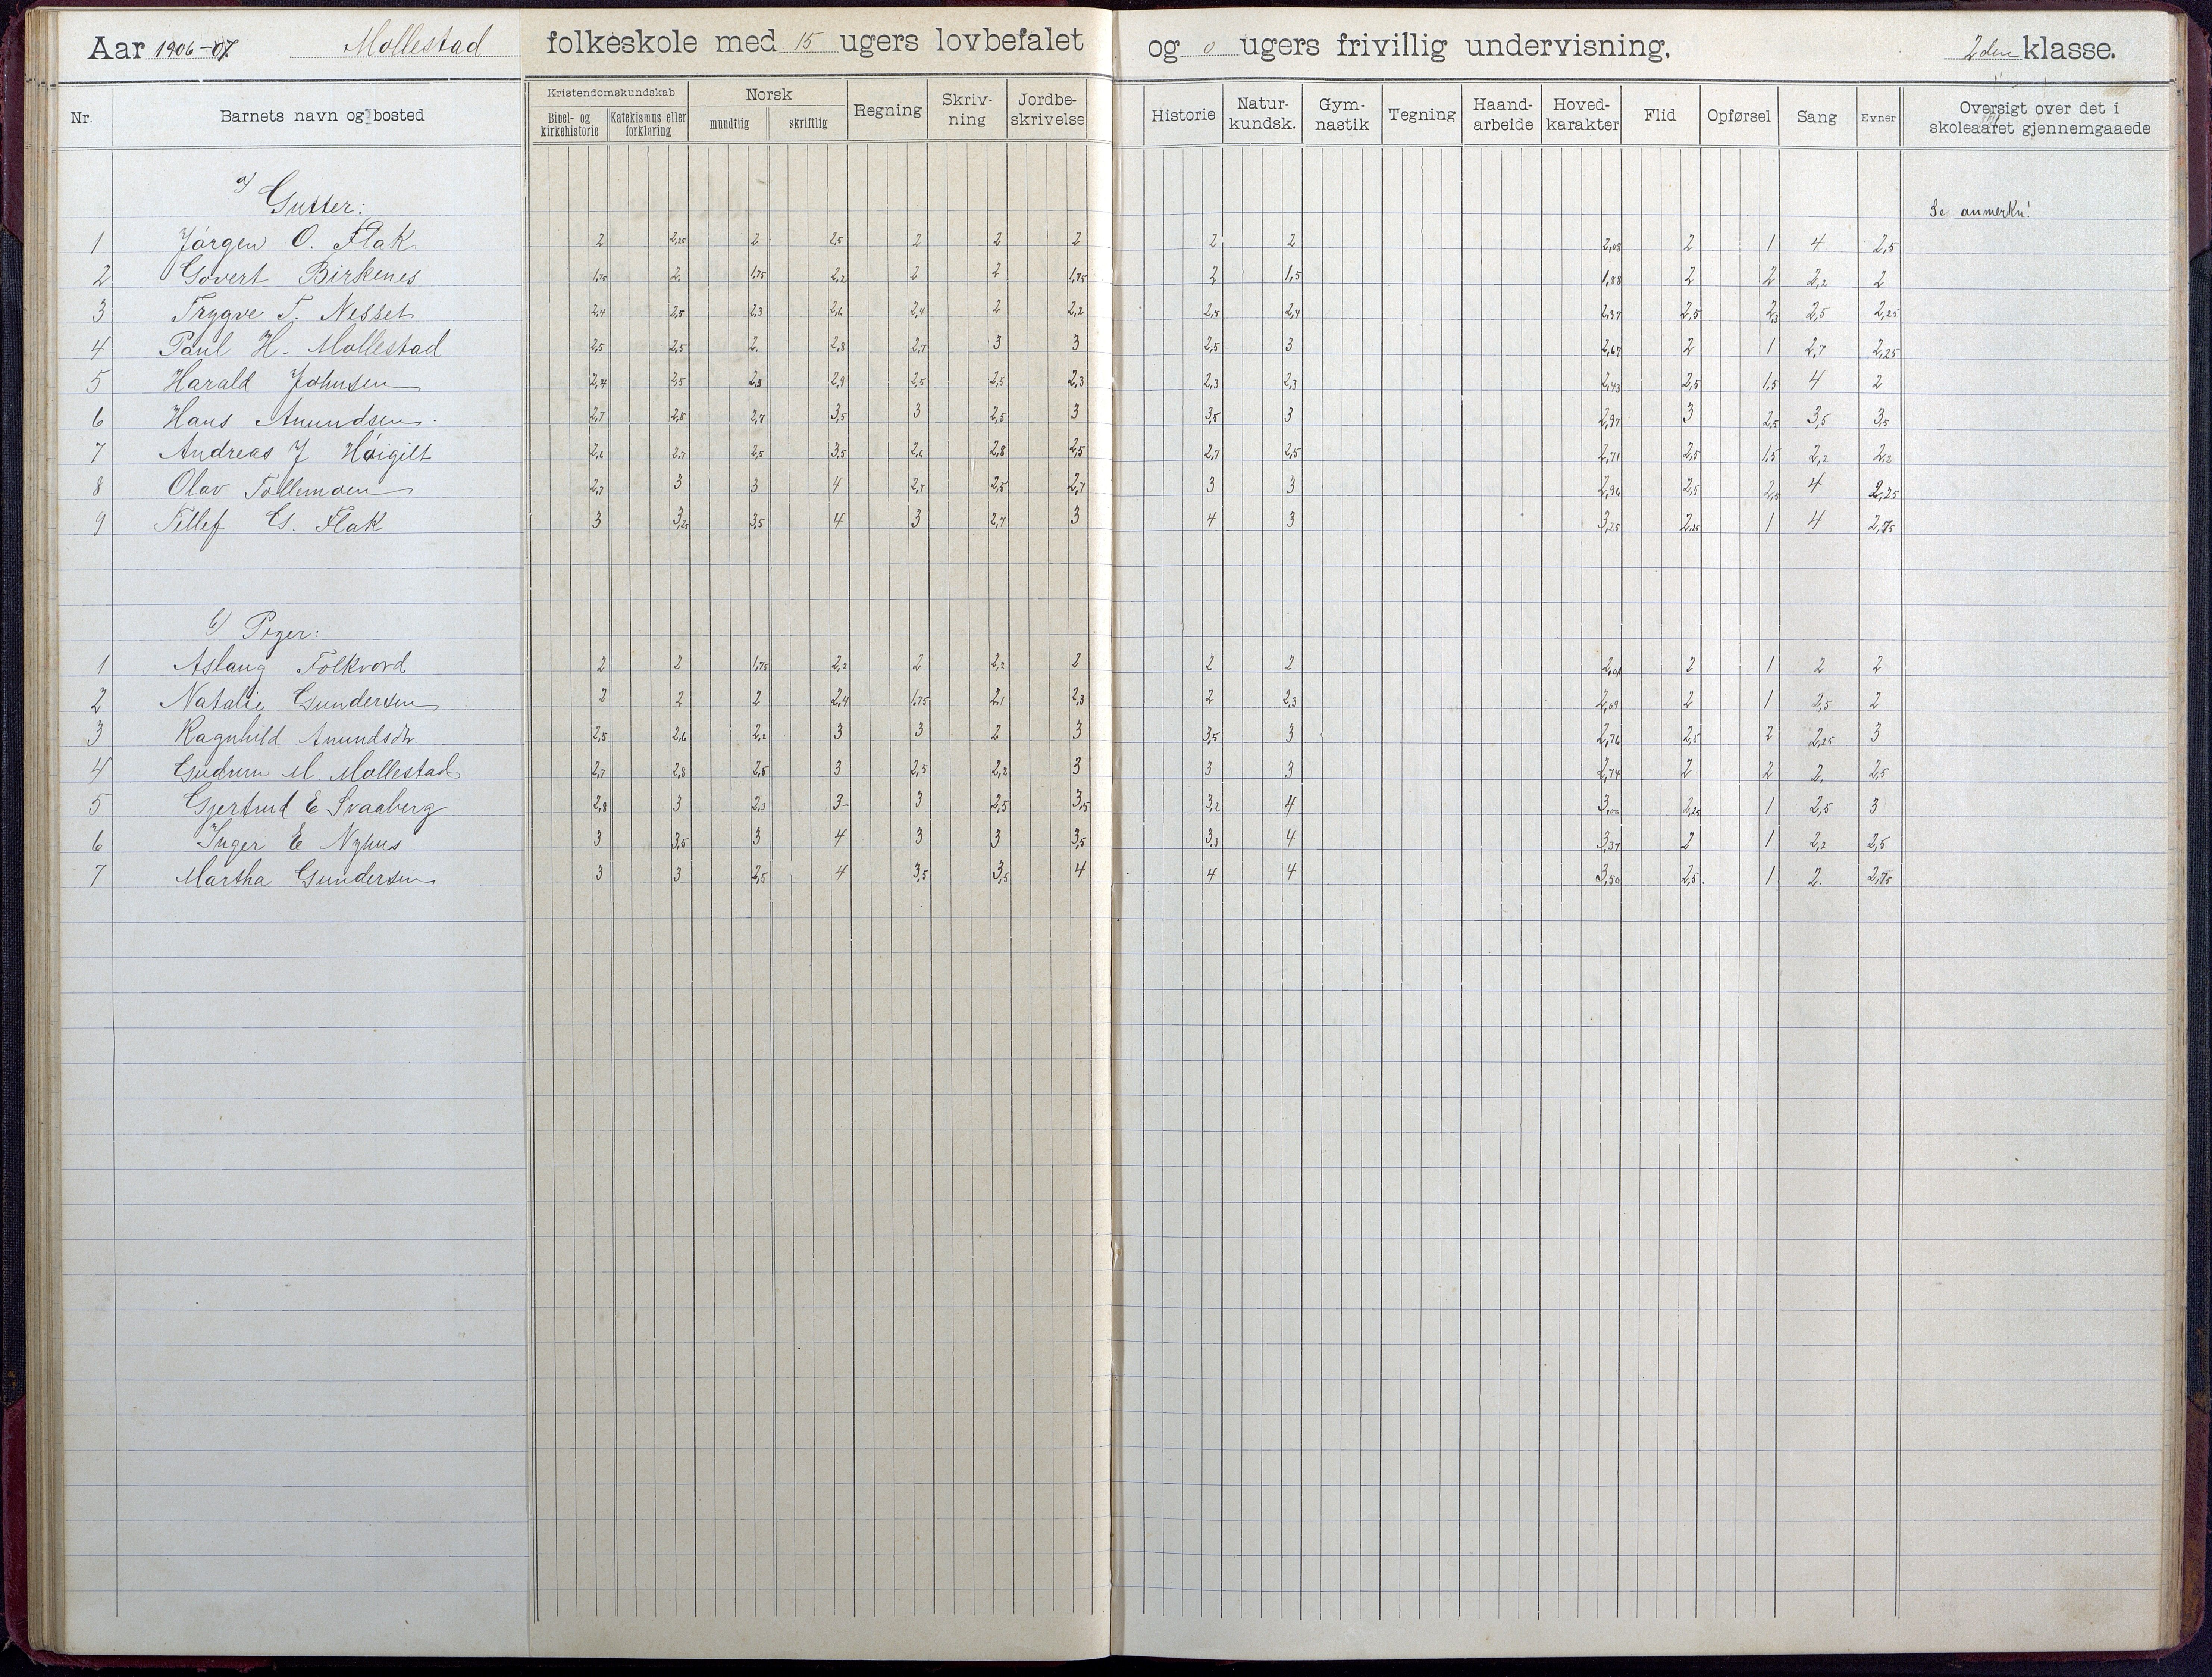 Aar 1906-07. Mollestad folkeskole med 15 ugers lovbefalet og 0 ugers frivillig undervisning, 2den klasse.
Nr. Barnets navn og bosted Kristendomskundskab Bibel- og kirkehistorie Katekismus eller forklaring Norsk mundtlig skriftlig Regning Skriv-ning Jordbe-skrivelse Historie Natur-kundsk. Gym-nastik Tegning Haand-arbeide Hoved-karakter Flid Opførsel Sang Evner Oversigt over det i skoleaaret gjennemgaaede
a) Gutter: Se anmerkn!
1 Jørgen O. Flak 2 2,25 2 2,5 2 2 2 2 2 2,08 2 1 4 2,5
2 Govert Birkenes 1,75 2. 1,75 2,2 2 2 1,75 2 1,5 1,88 2 2 2,2 2
3 Trygve T. Nesset 2,4 2,5 2,3 2,6 2,4 2 2,2 2,5 2,4 2,37 2,5 2,3 2,5 2,25
4 Paul H. Mollestad 2,5 2,5 2. 2,8 2,7 3 3 2,5 3 2,67 2 1 2,7 2,25
5 Harald Johnsen 2,4 2,5 2,3 2,9 2,5 2,5 2,3 2,3 2,3 2,43 2,5 1,5 4 2
6 Hans Anundsen. 2,7 2,8 2,7 3,5 3 2,5 3 3,5 3 2,97 3 2,5 3,5 3,5
7 Andreas J Høigilt 2,6 2,7 2,5 3,5 2,6 2,8 2,5 2,7 2,5 2,71 2,5 1,5 2,2 2,2
8 Olav Tollemoen 2,7 3 3 4 2,7 2,5 2,7 3 3 2,96 2,5 2,5 4 2,25
9 Tellef G. Flak 3 3,25 3,5 4 3 2,7 3 4 3 3,25 2,25 1 4 2,75
b) Piger:
1 Aslaug Folkvord 2 2 1,75 2,2 2 2,2 2 2 2 2,01 2 1 2 2
2 Natalie Gundersen 2 2 2 2,4 1,75 2,1 2,3 2 2,3 2,09 2 1 2,5 2
3 Ragnhild Anundsdtr. 2,5 2,6 2,2 3 3 2 3 3,5 3 2,76 2,5 2 2,25 3
4 Gudrun M. Mollestad 2,7 2,8 2,5 3 2,5 2,2 3 3 3 2,74 2 2 2. 2,5
5 Gjertrud E Svaaberg 2,8 3 2,3 3- 3 2,5 3,5 3,2 4 3,00 2,25 1 2,5 3
6 Inger E Nyhus 3 3,5 3 4 3 3 3,5 3,3 4 3,37 2 1 2,2 2,5
7 Martha Gundersen 3 3 2,5 4 3,5 3,5 4 4 4 3,50 2,5. 1 2. 2,75